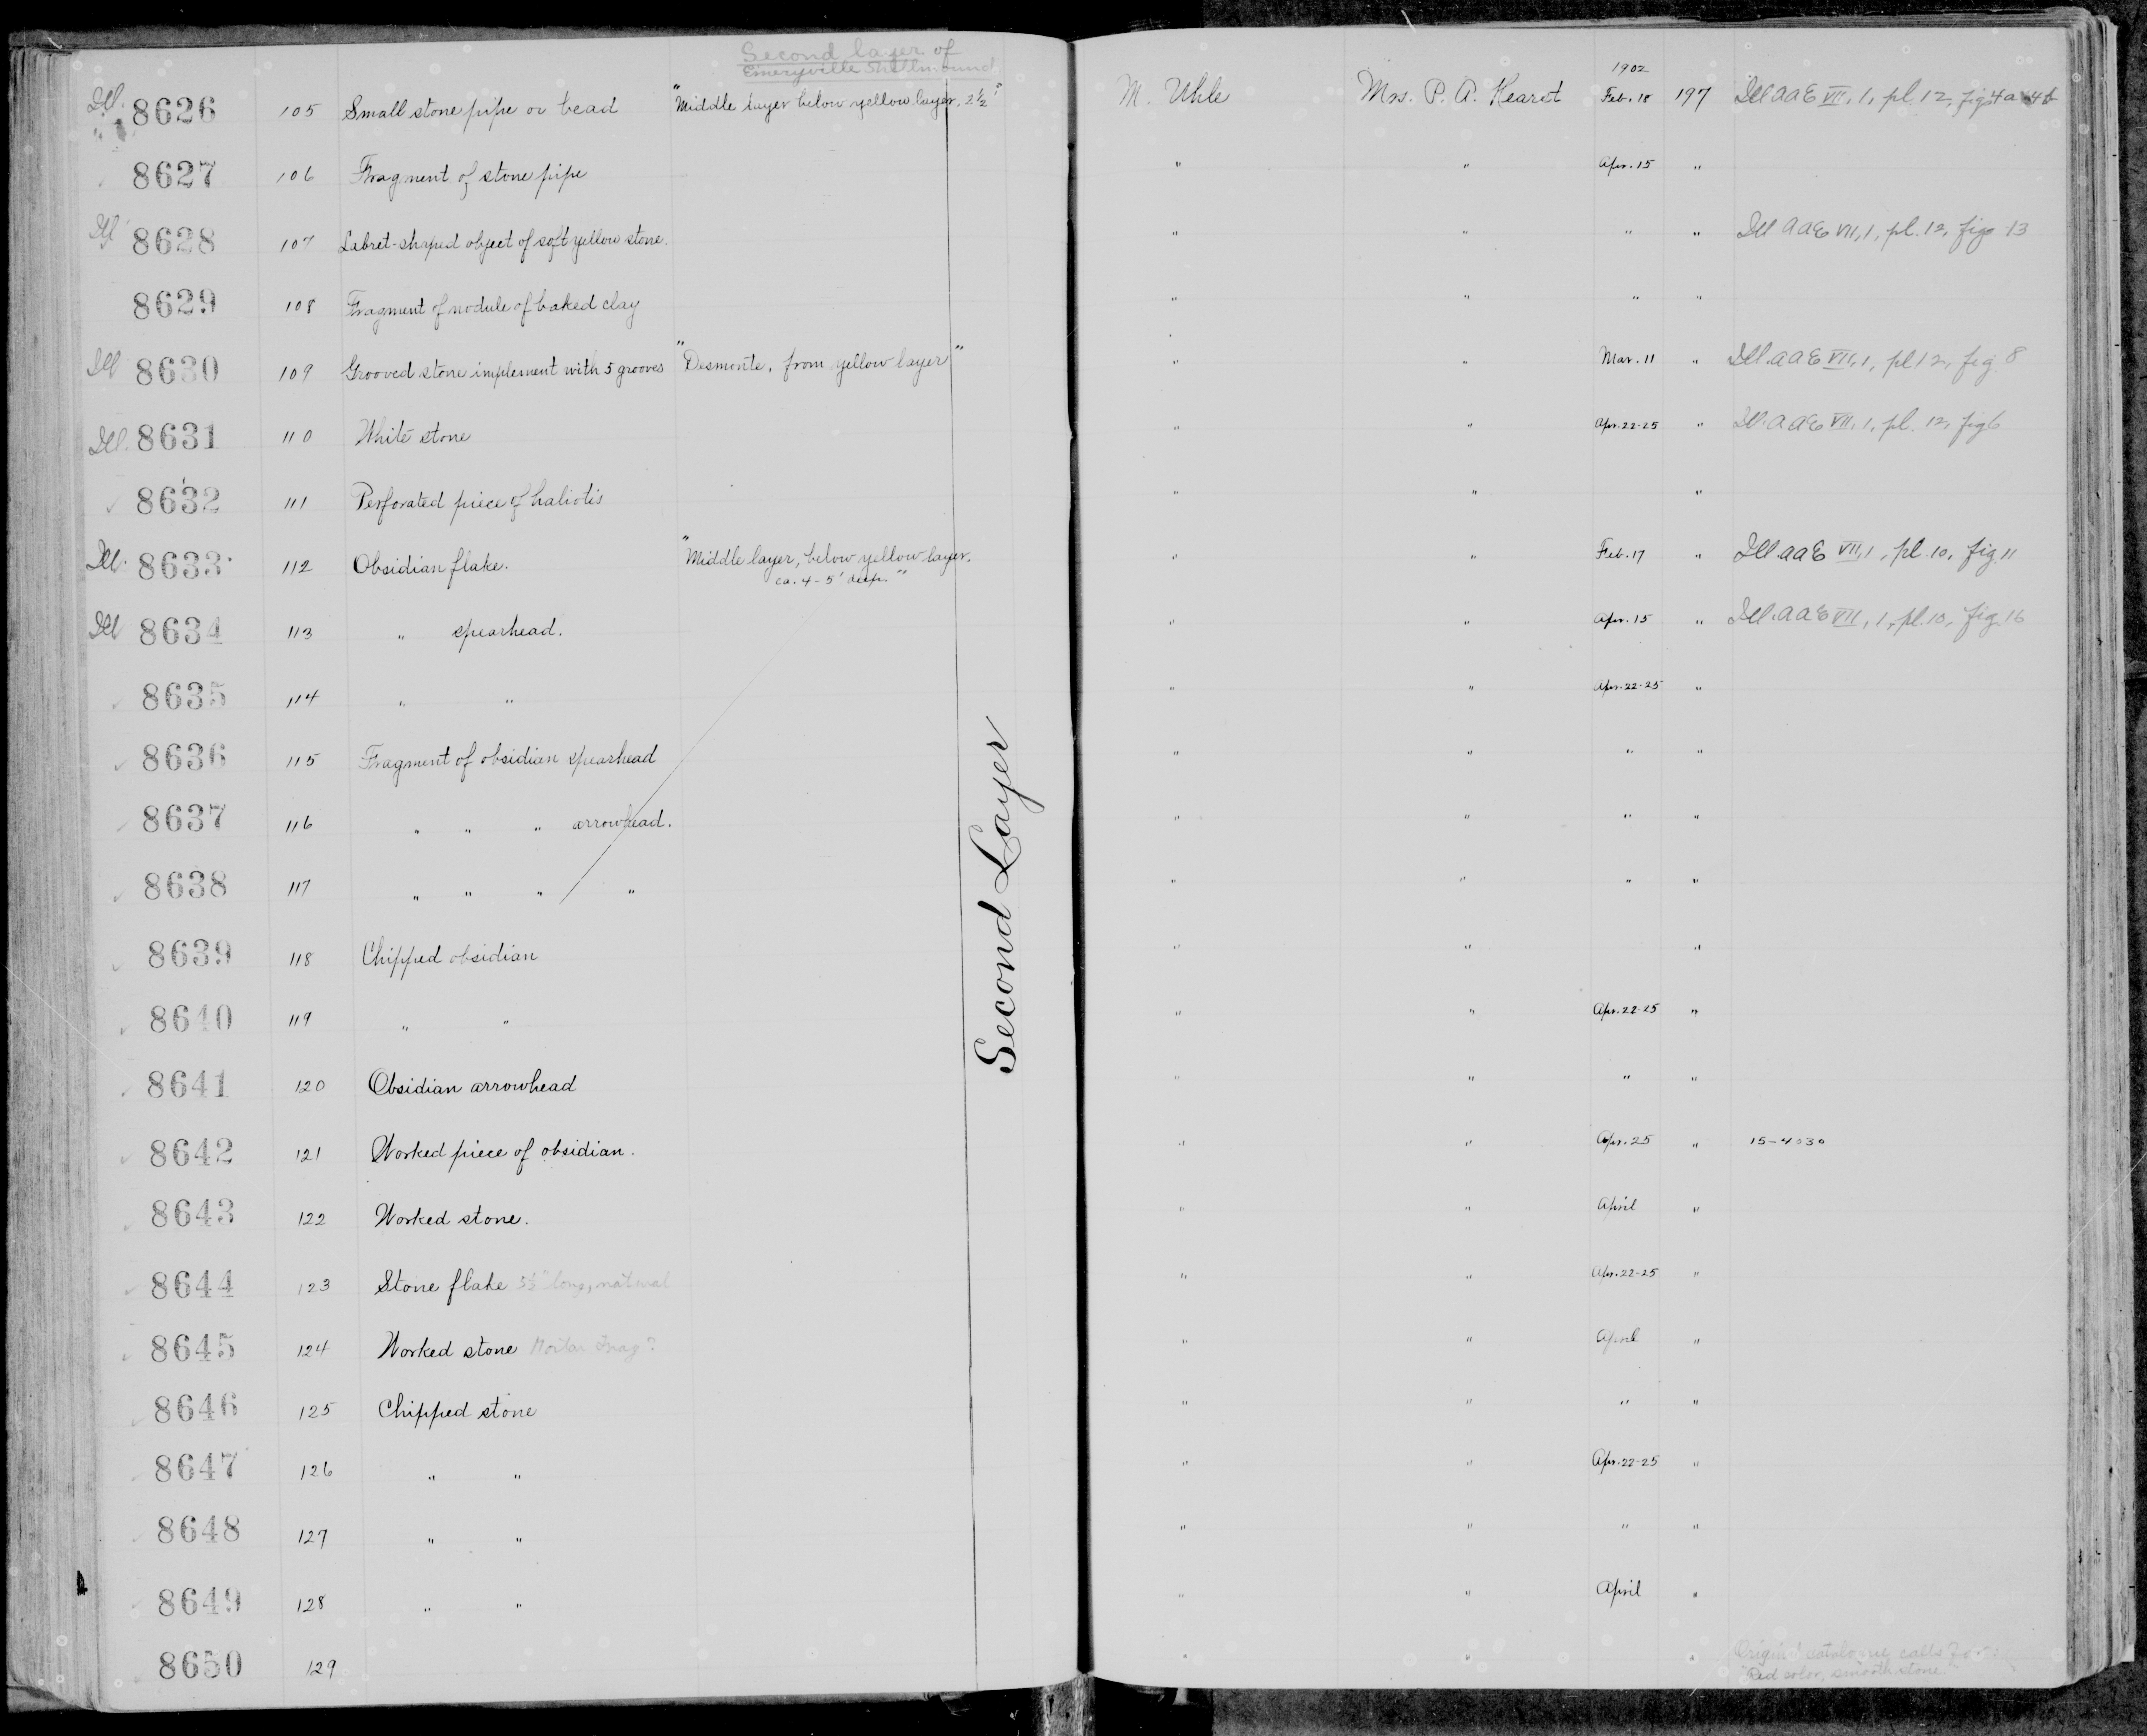 Second layer of
Emeryville Shellmound
1902
Ill. 8626 105 Small stone pipe or bead "Middle layer below yellow layer, 2½'" M. Uhle Mrs. P. A. Hearst Feb. 18 197 Ill AAE VII, 1, pl. 12, figs 4a 4b
8627 106 Fragment of stone pipe " " Apr. 15 "
Ill 8628 107 Labret-shaped object of soft yellow stone. " " " " Ill AAE VII, 1, pl. 12, fig 13
8629 108 Fragment of nodule of baked clay " " " "
Ill 8630 109 Grooved stone implement with 5 grooves "Desmonte, from yellow layer" " " Mar. 11 " Ill. AAE VII, 1, pl 12, fig 8
Ill. 8631 110 White stone " " Apr. 22-25 " Ill. AAE VII, 1, pl. 12, fig 6
8632 111 Perforated piece of haliotis " " "
Ill. 8633 112 Obsidian flake. "Middle layer, below yellow layer. " " Feb. 17 " Ill. AAE VII, 1, pl. 10, fig 11
ca. 4-5' deep."
Ill 8634 113 " spearhead. " " Apr. 15 " Ill. AAE VII, 1, pl. 10, fig. 16
8635 114 " " " " Apr. 22-25 "
8636 115 Fragment of obsidian spearhead " " " "
8637 116 " " " arrowhead. " " " "
8638 117 " " " " " " " "
8639 118 Chipped obsidian " " "
8640 119 " " " " Apr. 22-25 "
8641 120 Obsidian arrowhead " " " "
8642 121 Worked piece of obsidian. " " Apr. 25 " 15-4030
8643 122 Worked stone. " " April "
8644 123 Stone flake long, natural " " Apr. 22-25 "
8645 124 Worked stone Mortar Frag? " " April "
8646 125 Chipped stone " " " "
8647 126 " " " " Apr. 22-25 "
8648 127 " " " " " "
8649 128 " " " " April "
8650 129 " " "
Original catalogue calls
Red color, smooth stone
Second Layer